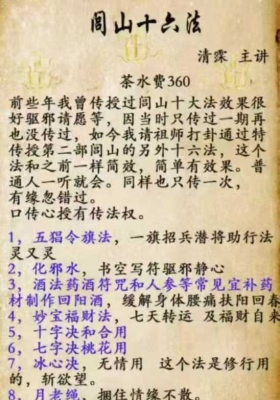 闾山十六法
清霂 主讲
茶水费360
前些年我曾传授过闾山十大法效果很
好驱邪请愿等，因当时只传过一期再
也没传过，如今我请祖师打卦通过特
传授第二部闾山的另外十六法，这个
法和之前一样简效，简单有效果。普
通人一听就会。同样也只传一次，
有缘忽错过。
口传心授有传法权。
1，五猖令旗法，一旗招兵潜将助行法
灵又灵
2，化邪水，书空写符驱邪静心
3，酒法药酒符咒和人参等常见宜补药
材制作回阳酒，缓解身体腰痛扶阳回春
4，妙宝福财法，七天转运 及福财自来
5，十字决和合用
6，七字决桃花用
7，冰心决，无情用 这个法是修行用
的，斩欲望。
8，月老绳，捆住情缘不散。